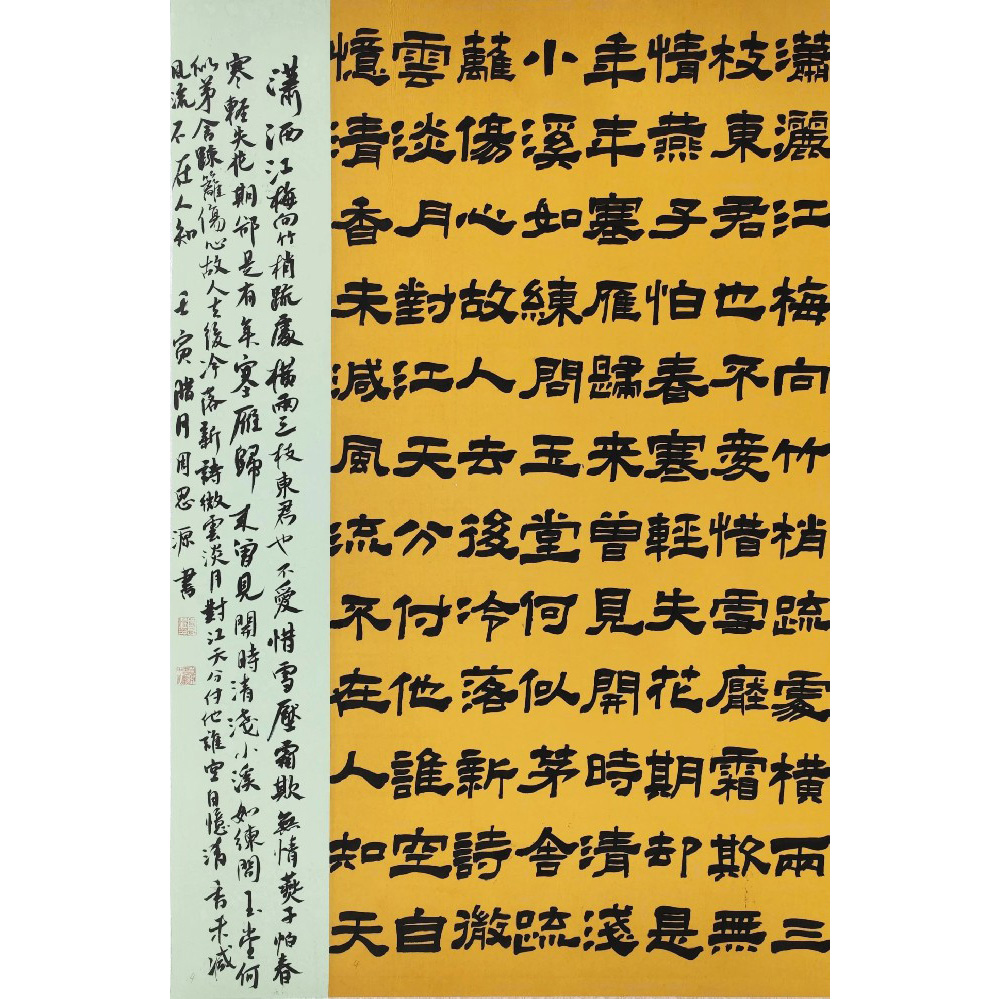 瀟灑江梅向竹梢疏處橫兩三
枝東君也不愛惜雪壓霜欺無
情燕子怕春寒輕失花期却是
年年塞雁歸來曾見開時清淺
小溪如練問玉堂何似茅舍疏
蘺傷心故人去後冷落新詩微
雲淡月對江天分付他誰空自
憶清香未減風流不在人知天
瀟洒江梅向竹梢疏處橫兩三枝東君也不愛惜雪壓霜欺無情燕子怕春
寒輕失花期却是有年塞雁歸來曾見開時清淺小溪如練問玉堂何
似茅舍疎籬傷心故人去後冷落新詩微雲淡月對江天分付他誰空自憶清香未減
風流不在人知 壬寅臘月周思源書